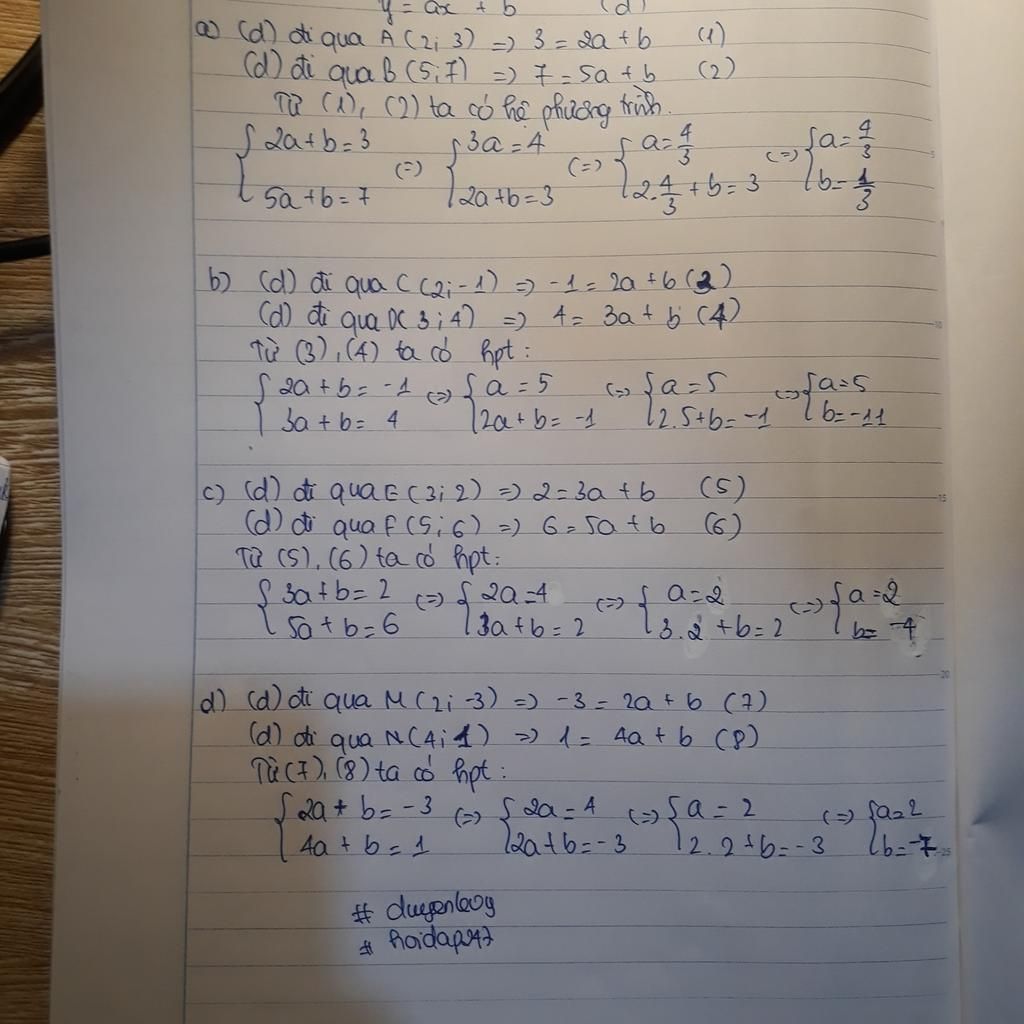 y = ax + b (d)
a) (d) đi qua A(2;3) => 3 = 2a+b (1)
(d) đi qua B(5;7) => 7 = 5a+b (2)
Từ (1), (2) ta có hệ phương trình.
{2a+b=3 (=) {3a=4 (=) {a=4/3 (=) {a=4/3
5a+b=7 2a+b=3 2.4/3+b=3 b=1/3
b) (d) đi qua C(2;-1) => -1 = 2a+b (3)
(d) đi qua D(3;4) => 4 = 3a+b (4)
Từ (3), (4) ta có hpt:
{2a+b=-1 (=) {a=5 (=) {a=5 (=) {a=5
3a+b=4 2a+b=-1 2.5+b=-1 b=-11
c) (d) đi qua E(3;2) => 2=3a+b (5)
(d) đi qua F(5;6) => 6=5a+b (6)
Từ (5), (6) ta có hpt:
{3a+b=2 (=) {2a=4 (=) {a=2 (=) {a=2
5a+b=6 3a+b=2 3.2+b=2 b=-4
d) (d) đi qua M(2;-3) => -3 = 2a+b (7)
(d) đi qua N(4;1) => 1 = 4a+b (8)
Từ (7), (8) ta có hpt:
{2a+b=-3 (=) {2a=4 (=) {a=2 (=) {a=2
4a+b=1 2a+b=-3 2.2+b=-3 b=-7
#
# hoidap247